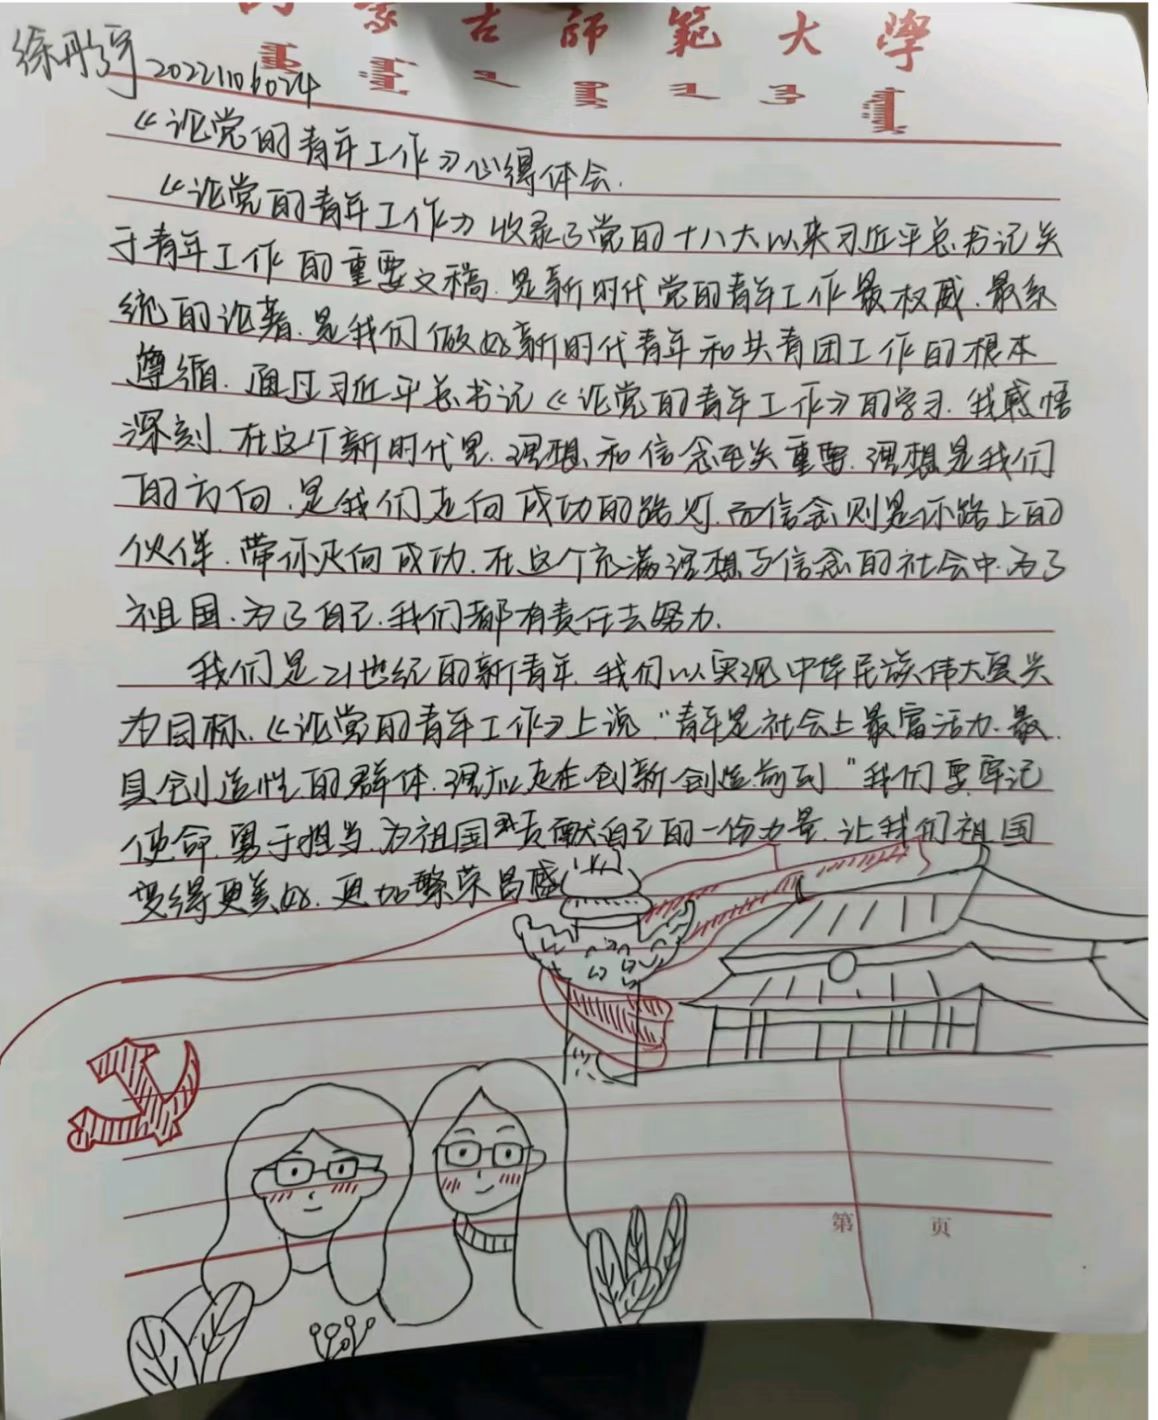 内蒙古師範大學
徐丹
20221106024
《论党的青年工作》心得体会.
《论党的青年工作》收录了党的十八大以来习近平总书记关
于青年工作的重要文稿.是新时代党的青年工作最权威.最系
统的论著.是我们做好新时代青年和共青团工作的根本
遵循.通过习近平总书记《论党的青年工作》的学习.我感悟
深刻.在这个新时代里.理想和信念至关重要.理想是我们
的方向.是我们走向成功的路灯.而信念则是你路上的
伙伴.带你走向成功.在这个充满理想与信念的社会中.为了
祖国.为了自己.我们都有责任去努力.
我们是21世纪的新青年.我们以实现中华民族伟大复兴
为目标.《论党的青年工作》上说"青年是社会上最富活力.最
具创造性的群体.理应走在创新创造前列"我们要牢记
使命.勇于担当.为祖国贡献自己的一份力量.让我们祖国
变得更美好.更加繁荣昌盛
第 页